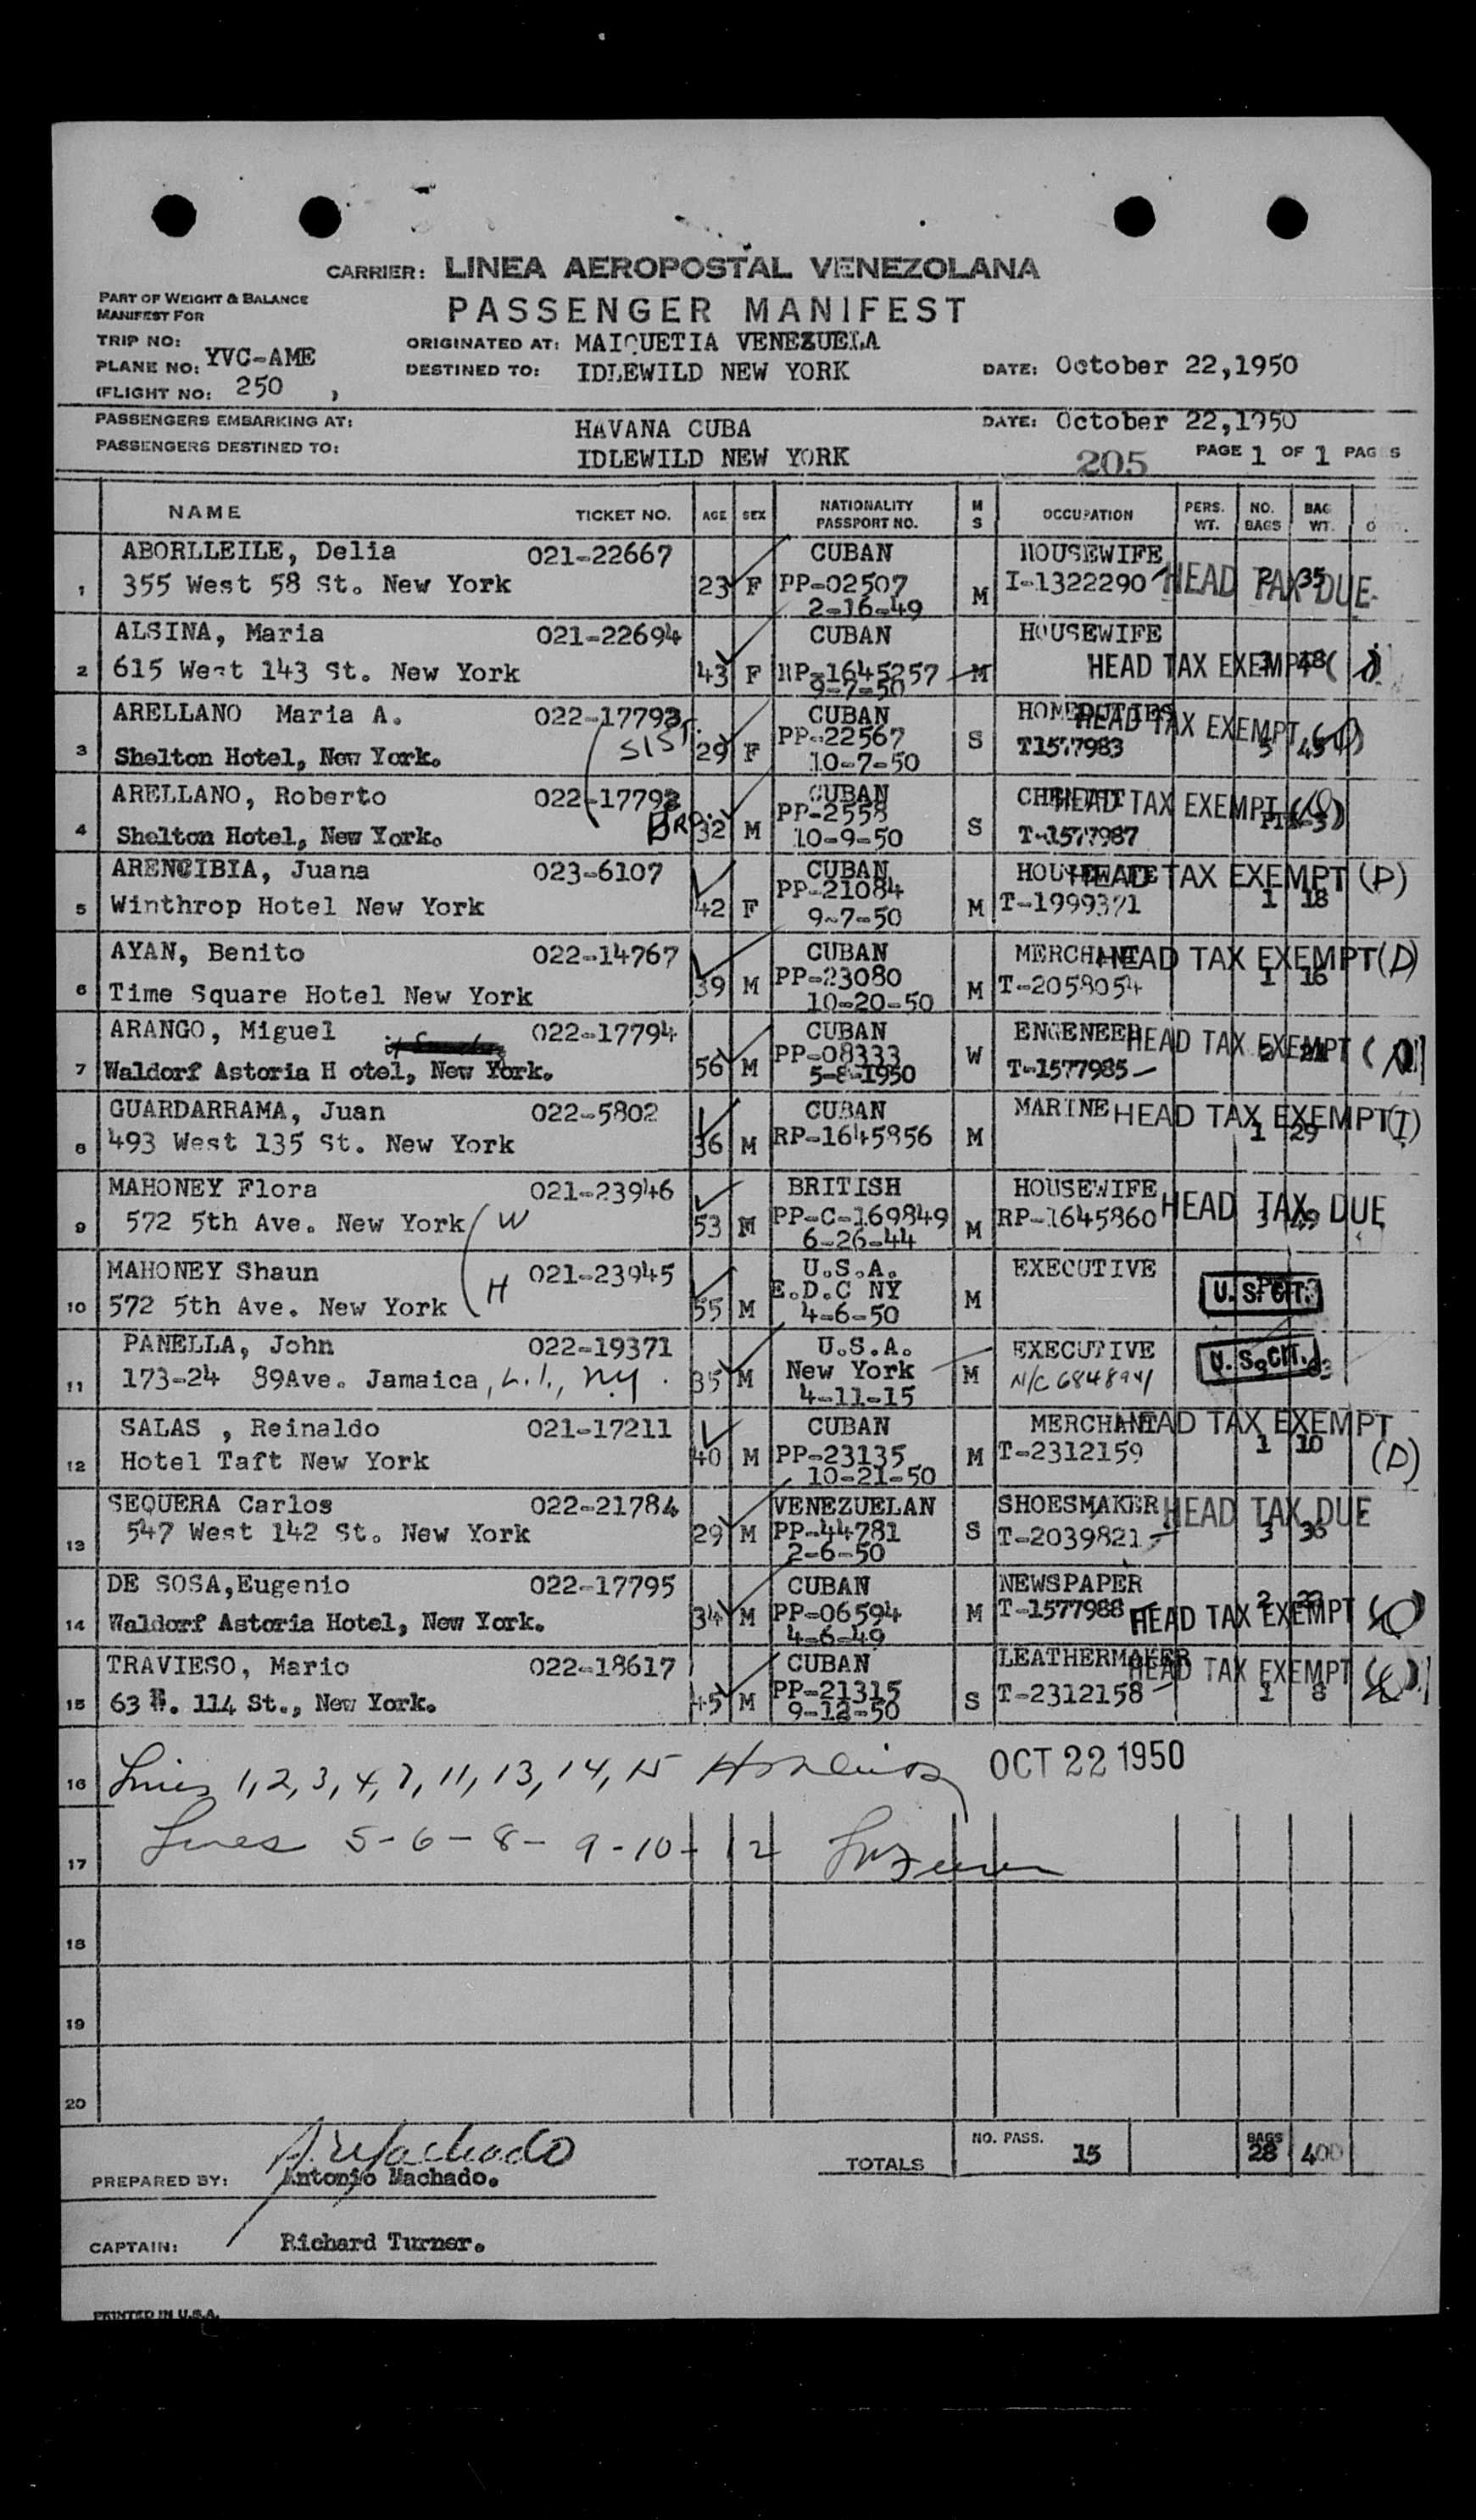 CARRIER: LINEA AEROPOSTAL VENEZOLANA
PART OF WEIGHT & BALANCE
MANIFEST FOR
PASSENGER MANIFEST
TRIP NO:
PLANE NO: YVC-AME
(FLIGHT NO: 250 )
ORIGINATED AT: MAIQUETIA VENEZUELA
DESTINED TO: IDLEWILD NEW YORK
DATE: October 22,1950
PASSENGERS EMBARKING AT: HAVANA CUBA
DATE: October 22,1950
PASSENGERS DESTINED TO: IDLEWILD NEW YORK
205 PAGE 1 OF 1 PAGES
NAME TICKET NO. AGE SEX NATIONALITY PASSPORT NO. M S OCCUPATION PERS. WT. NO. BAGS BAG WT.
ABORLLEILE, Delia 021-22667 CUBAN HOUSEWIFE
1 355 West 58 St. New York 23 F PP-02507 M I-1322290 HEAD TAX DUE 2 35
2-16-49
ALSINA, Maria 021-22694 CUBAN HOUSEWIFE
2 615 West 143 St. New York 43 F RP-1645257 M HEAD TAX EXEMPT
9-7-50
ARELLANO Maria A. 022-17793 CUBAN HEAD TAX EXEMPT
SIST. PP-22567
3 Shelton Hotel, New York. 29 F 10-7-50 S T1577983
ARELLANO, Roberto 022-17792 CUBAN HEAD TAX EXEMPT
BRO. PP-2558
4 Shelton Hotel, New York. 32 M 10-9-50 S T-1577987
ARENCIBIA, Juana 023-6107 CUBAN HEAD TAX EXEMPT (D)
PP-21084
5 Winthrop Hotel New York 42 F 9-7-50 M T-1999371 1 18
AYAN, Benito 022-14767 CUBAN MERCHANT HEAD TAX EXEMPT (D)
PP-23080
6 Time Square Hotel New York 39 M 10-20-50 M T-2058054 1 16
ARANGO, Miguel 022-17794 CUBAN ENGENEER HEAD TAX EXEMPT
PP-08333
7 Waldorf Astoria H otel, New York. 56 M 5-8-1950 W T-1577985
GUARDARRAMA, Juan 022-5802 CUBAN MARINE HEAD TAX EXEMPT (I)
8 493 West 135 St. New York 36 M RP-1645856 M 1 29
MAHONEY Flora 021-23946 BRITISH HOUSEWIFE
9 572 5th Ave. New York W 53 M PP-C-169849 M RP-1645860 HEAD TAX DUE 3 49
6-26-44
MAHONEY Shaun 021-23945 U.S.A. EXECUTIVE
H E.D.C NY U.S. CIT.
10 572 5th Ave. New York 55 M 4-6-50 M
PANELLA, John 022-19371 U.S.A. EXECUTIVE
11 173-24 89Ave. Jamaica, L.I., N.Y. 35 M New York M U.S. CIT.
4-11-15
SALAS , Reinaldo 021-17211 CUBAN MERCHANT HEAD TAX EXEMPT
12 Hotel Taft New York 40 M PP-23135 M T-2312159 1 10 (D)
10-21-50
SEQUERA Carlos 022-21784 VENEZUELAN SHOESMAKER HEAD TAX DUE
13 547 West 142 St. New York 29 M PP-44781 S T-2039821 3 36
2-6-50
DE SOSA,Eugenio 022-17795 CUBAN NEWSPAPER
14 Waldorf Astoria Hotel, New York. 34 M PP-06594 M T-1577988 HEAD TAX EXEMPT
4-6-49
TRAVIESO, Mario 022-18617 CUBAN LEATHERMAKER HEAD TAX EXEMPT
15 63 E. 114 St., New York. 45 M PP-21315 S T-2312158 1 8
9-12-50
16 Lines 1,2,3,4,7,11,13,14,15 OCT 22 1950
17 Lines 5-6-8-9-10-12
18
19
20
TOTALS NO. PASS. 15 BAGS 28 400
PREPARED BY: Antonio Machado.
CAPTAIN: Richard Turner.
PRINTED IN U.S.A.